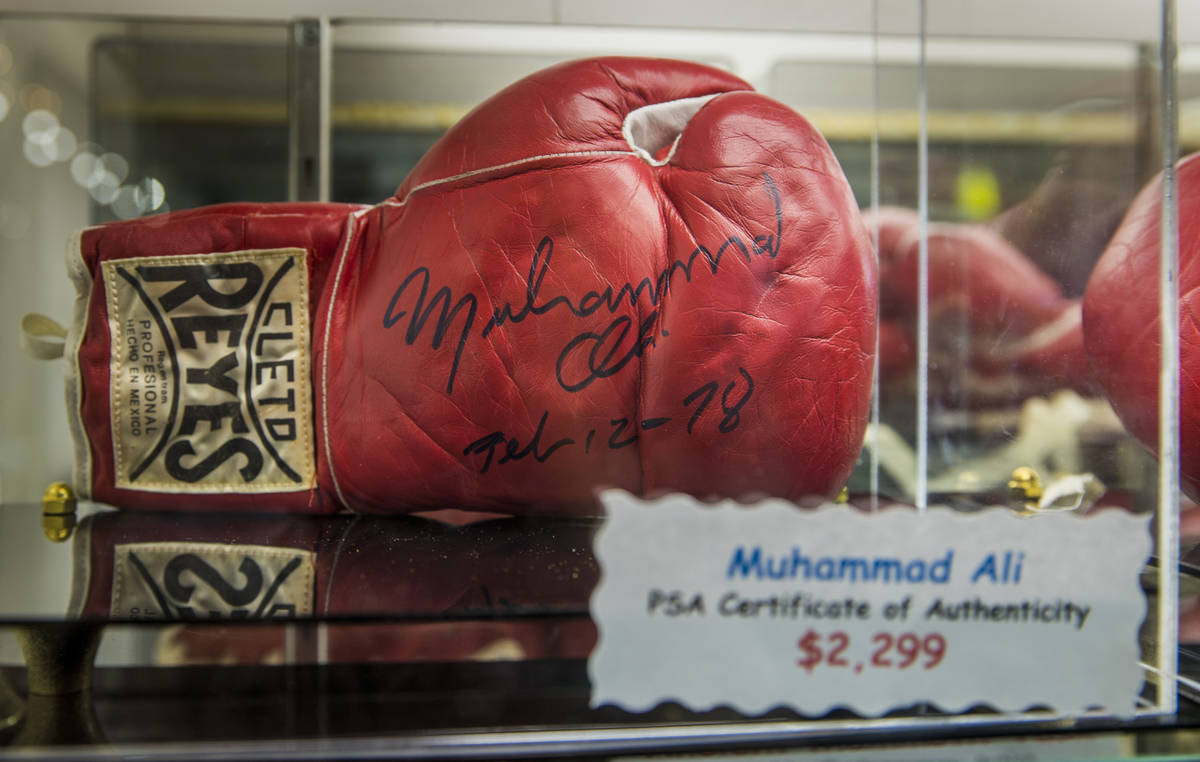 CLETO
REYES
Registro m.
PROFESIONAL
HECHO EN MEXICO
Muhammad
Ali
Feb 12-78
Muhammad Ali
PSA Certificate of Authenticity
$2,299